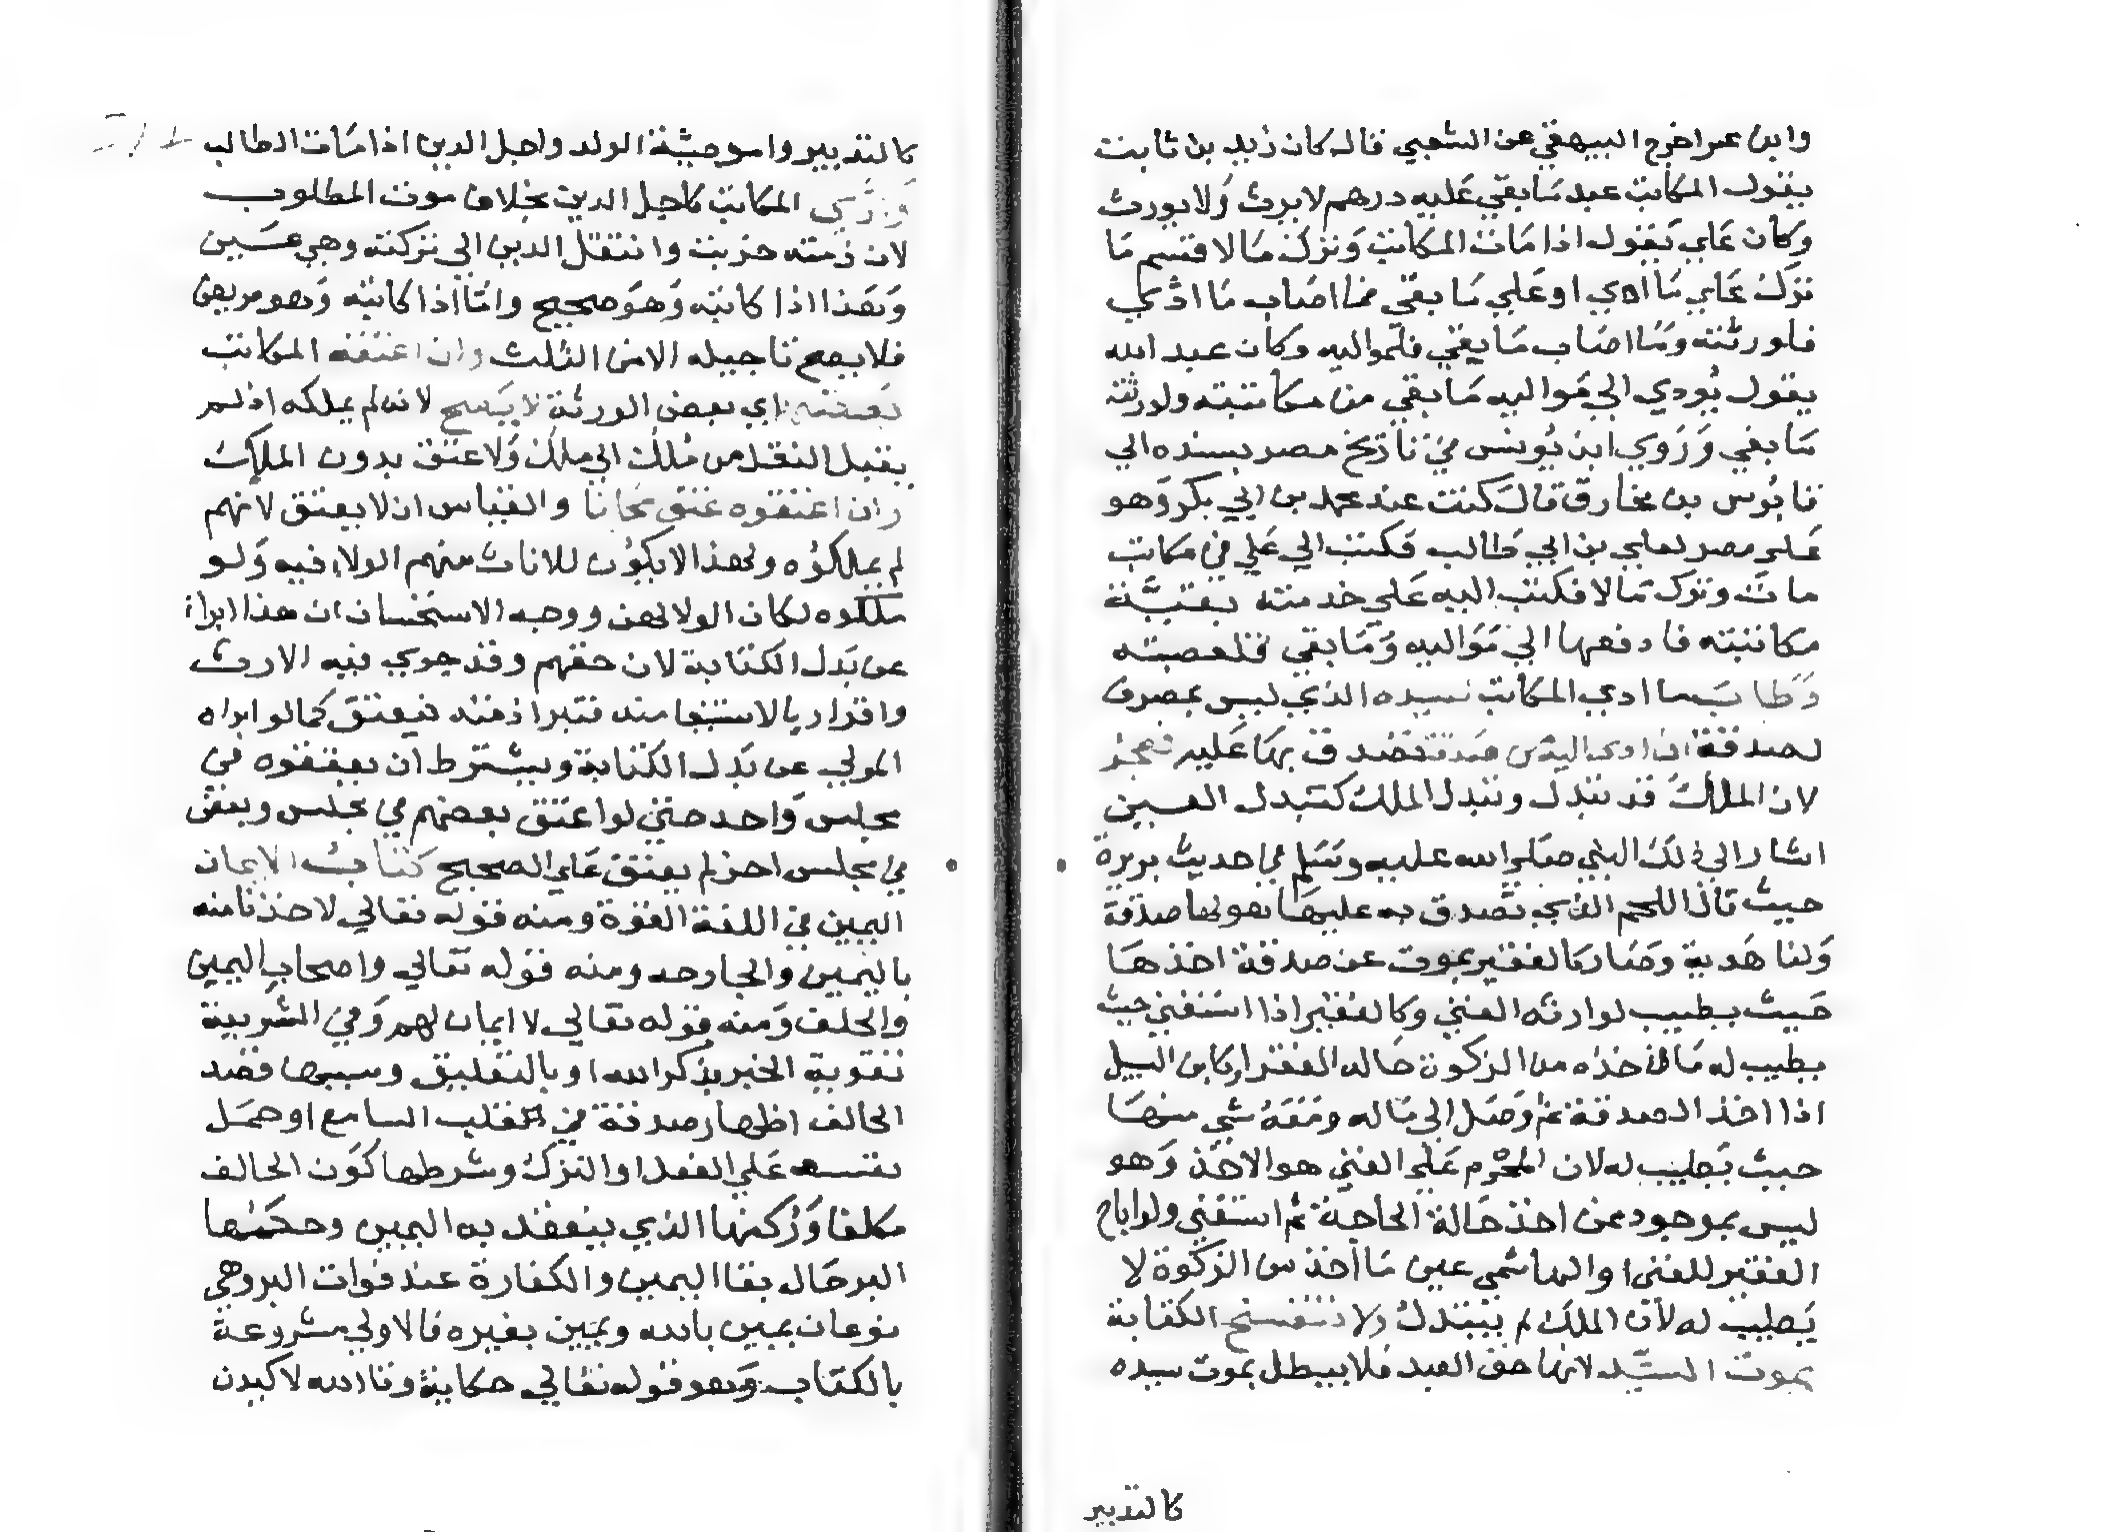 وابن عمر اخرج البيهقي عن الشعبي قال كان زيد بن ثابت
يقول المكاتب عبد مَا بقي عَليه درهم لا يرث وَلا يورث
وكان عَلي يَقول اذا مَات المكاتب وَترك مَالا قسم مَا
ترك عَلي مَا ادي او عَلي مَا بقي فما اصَاب مَا ادّي
فلورثته وَمَا اصَاب مَا بقي فلمواليه وكان عبد الله
يقول يُودي الي مَواليه مَا بقي من مكاتبته ولورثته
مَا بقي وَرَوي ابن يُونس في تاريخ مصر بسنده الي
قابُوس بن مخارق قالَ كنت عند محمد بن ابي بكر وَهو
عَلى مصر لعلي بن ابي طَالب فكتب الي عَلي في مكاتب
مات وترك مَالا فكتب اليه عَلي خذ منه بقيَّة
مكاتبته فادفعها الي مَوَاليه وَمَا بقي فلعصبته
وَطابَ ما ادي المكاتب لسيده الذي ليس بمصرف
لصدقة ان ادي اليه من صَدقة تصُدق بهَا عَليه فعجز
لان الملك قد تبدل وتبدل الملك كتبدل العين
اشار الي ذلك النبي صَلى الله عليه وسَلم في حديث بريرة
حيث قال اللحم الذي تُصدق به عليهَا هو لها صدقة
وَلنا هَدية وصَار كالفقير يموت عن صدقة اخذهَا
حَيث يطيب لوارثه الغني وكالفقير اذا استغني حيث
يطيب له مَا اخذه من الزكوة حَاله الفقر او كابن السبيل
اذا اخذ الصدقة ثم وَصَل الي مَاله ومَعَهُ شي منهَا
حيث يَطيب له لان المحرم عَلى الغني هو الاخذ وَهو
ليس بموجود من اخذ حَالة الحاجة ثم استغني ولو اباح
الفقير للغني او الهاشمي عين مَا اخذ من الزكوة لا
يَطيب له لاَن الملك لم يتبدل ولا تنفسخ الكتابة
بموت السيّد لانها حق العبد فلا يبطل بموت سيده
كالتدبير
كالتدبير واموميّة الولد واجل الدين اذا مَات الطالب
وَيؤدّي المكاتب كاجل الدين بخلاف موت المطلوب
لان ذمته خربت وانتقل الدين الي تركته وهي عَين
وَهَذا اذا كاتبه وَهوَ صحيح وامّا اذا كاتبه وَهو مريض
فلا يصح تاجيله الا من الثلث وان اعتقه المكاتب
بَعضهُم اي بعض الورثة لا يَصح لانه لم يملكه اذ لم
يقبل النقل من مُلك الي ملك وَلا عتق بدون الملك
وان اعتقوه عتق مجَّانا والقياس ان لا يعتق لانهم
لم يملكوُه ولهذا لا يكوُن للاناث منهم الولاء فيه وَلو
مَلكوه لكان الولا لهن ووجه الاستحسان ان هذا ابراء
عن بَدل الكتابة لان حقهم وقد جري فيه الارث
واقرار بالاستيفا منه فتبرا ذمته فيعتقَ كما لو ابراه
المولي عن بَدل الكتابة ويشترط ان يعتقوه في
مجلس وَاحد حتي لو اعتق بعضهم في مجلس وبعض
في مجلس اخر لم يعتق عَلي الصحيح كتابُ الايمان
اليمين في اللغة القوة ومنه قوله تعالي لاخذنا منه
باليمين والجارحه ومنه قوله تعالي واصحاب اليمين
والحلف وَمنه قوله تعالي لا ايمان لهم وَفي الشريعة
تقوية الخبر بذكر الله او بالتعليق وسببها قصد
الحالف اظهار صدقة في قلب السامع او حمَل
نفسه عَلي الفعل او الترك وشرطها كَون الحالف
مكلفا وَرُكنها الذي ينعقد به اليمين وحكمُها
البر حَال بقا اليمين والكفارة عند فوات البر وهي
نوعان يمين بالله ويمَين بغيره فالاولي مشروعة
بالكتاب وَهو قوله تعَالي حكاية وتا الله لاكيدن